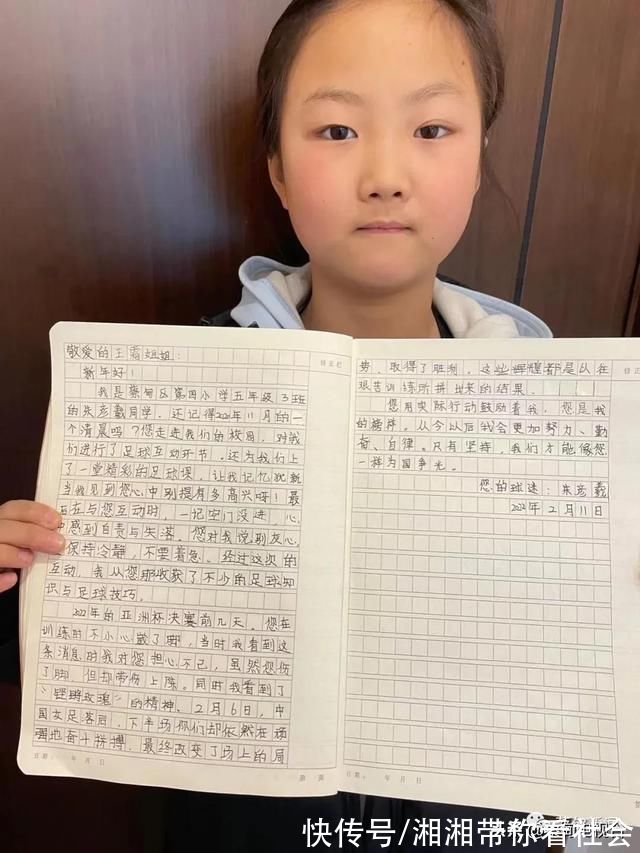 敬爱的王霜姐姐：
新年好！
我是蔡甸区第四小学五年级3班
的朱彦羲同学，还记得2021年11月的一
个清晨吗？您走进我们的校园，对我
们进行了足球互动环节。还为我们上
了一堂精彩的足球课，让我记忆犹新
当我见到您心中别提有多高兴呀！最
后在与您互动时，一记空门没进，心
中感到自责与失落。您对我说别灰心
保持冷静，不要着急。经过这次的
互动，我从您那收获了不少的足球知
识与足球技巧。
2022年的亚洲杯决赛前几天，您在
训练时不小心崴了脚，当时我看到这
条消息时我对您担心不已，虽然您伤
了脚，但却带伤上阵。同时我看到了
“铿锵玫瑰”的精神。2月6日，中
国女足落后，下半场你们却依然在顽
强地奋斗拼搏，最终改变了场上的局
日期： 年 月 日
第 页
修正栏
势，取得了胜利，这些辉煌都是从在
艰苦训练所拼出来的结果。
您用实际行动鼓励着我，您是我
的榜样，从今以后我会更加努力、勤
奋、自律。只有坚持，我们才能像您
一样为国争光。
您的球迷：朱彦羲
2022年2月11日
修正
日期： 年 月 日
快传号/湘湘带你看社会